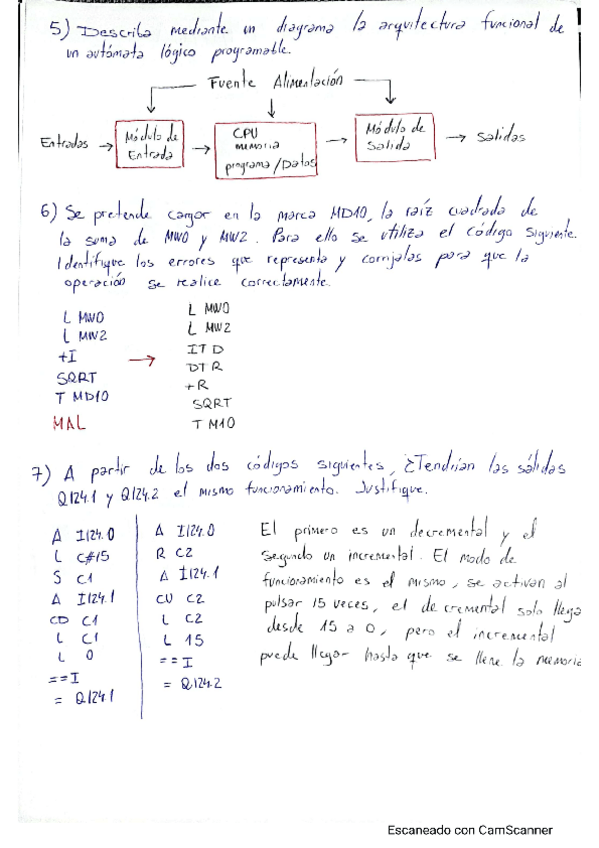 5) Describa mediante un diagrama la arquitectura funcional de
un autómata lógico programable.
Fuente Alimentación
Entradas → Módulo de Entrada → CPU memoria programa/Datos → Módulo de Salida → Salidas
6) Se pretende cargar en la marca MD10, la raíz cuadrada de
la suma de MW0 y MW2. Para ello se utiliza el código siguiente.
Identifique los errores que representa y corrijalas para que la
operación se realice correctamente.
L MW0
L MW2
+I
SQRT
T MD10
MAL
→
L MW0
L MW2
ITD
DTR
+R
SQRT
T M10
7) A partir de los dos códigos siguientes, ¿Tendrían las sálidas
Q124.1 y Q124.2 el mismo funcionamiento. Justifique.
A I124.0
L C#15
S C1
A I124.1
CD C1
L C1
L 0
==I
= Q124.1
A I124.0
R C2
A I124.1
CU C2
L C2
L 15
==I
= Q124.2
El primero es un decremental y el
segundo un incremental. El modo de
funcionamiento es el mismo, se activan al
pulsar 15 veces, el decremental solo llega
desde 15 a 0, pero el incremental
puede llegar hasta que se llene la memoria
Escaneado con CamScanner